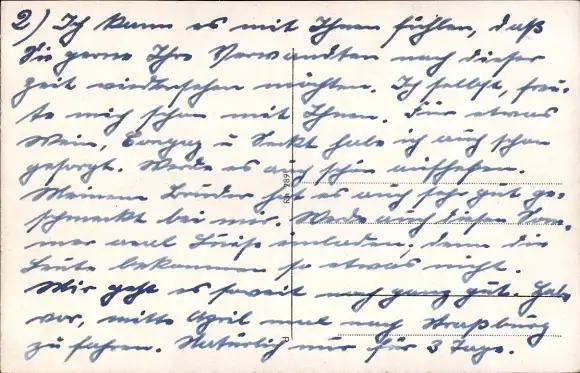 2) Ich kann es mit Ihnen fühlen, daß
Sie gerne Ihre Verwandten nach dieser
Zeit wiedersehen möchten. Ich selbst, freu-
te mich schon mit Ihnen. Für etwas
Wein, u Sekt habe ich auch schon
gesorgt. Werde es auch schön aufheben.
Meinem Bruder hat es auch sehr gut ge-
schmeckt bei mir. Werde auch diesen Som-
mer mal Luise einladen, denn die
Leute bekommen so etwas nicht.
Mir geht es soweit noch ganz gut. Habe
vor, mitte April mal nach Straßburg
zu fahren. Natürlich nur für 3 Tage.